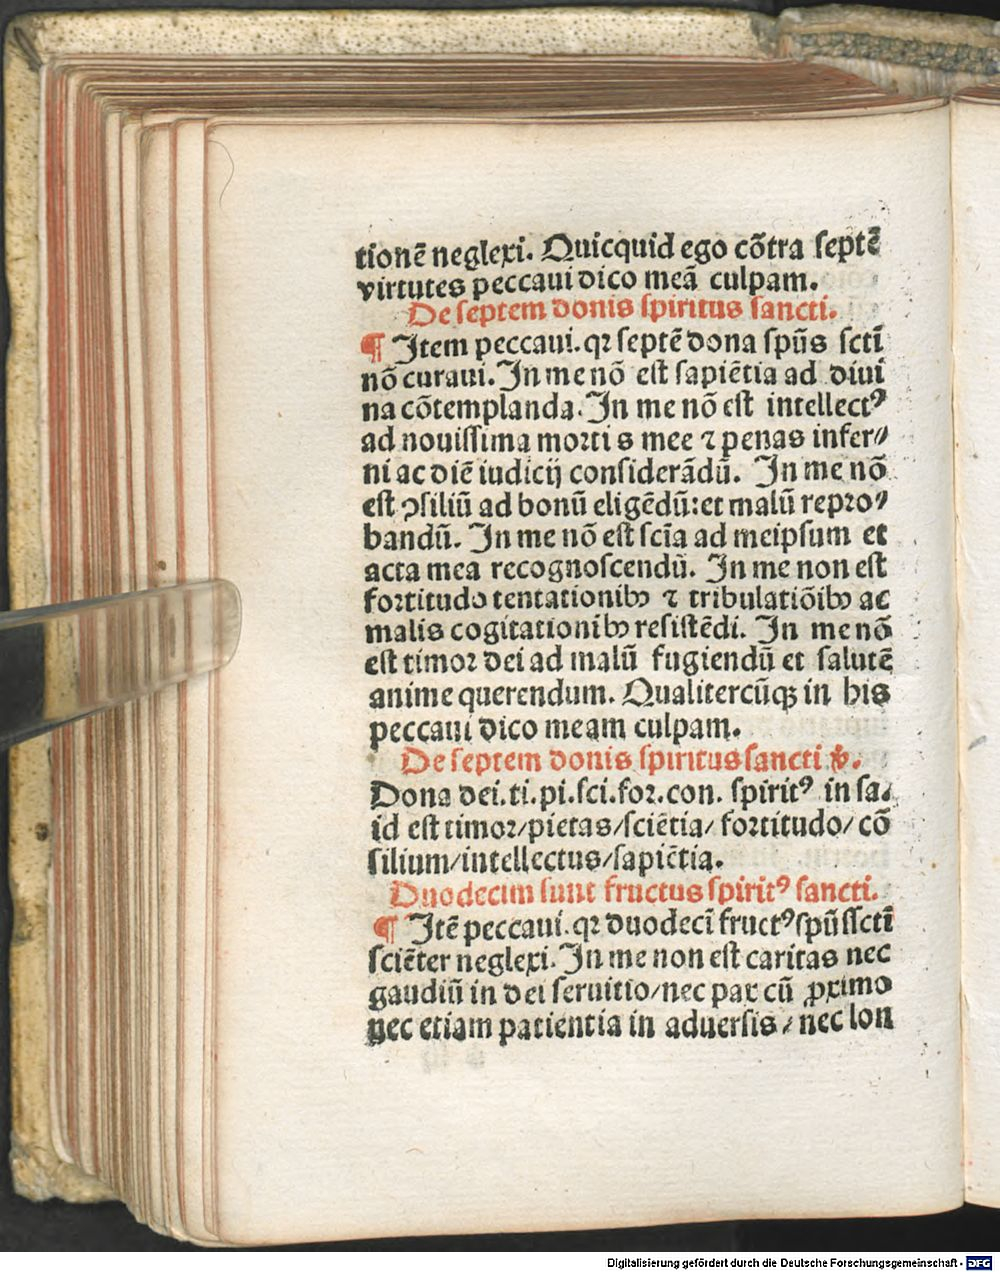 tionē neglexi. Quicquid ego cõtra septē
virtutes peccaui dico meã culpam.
De septem donis spiritus sancti.
¶ Item peccaui. qꝛ septē dona spūs scti
nõ curaui. In me nõ est sapiētia ad diui
na cõtemplanda. In me nõ est intellectꝰ
ad nouissima mortis mee ⁊ penas infer⸗
ni ac diē iudicij considerãdū. In me nõ
est ꝯsiliū ad bonū eligēdū: et malū repro⸗
bandū. In me nõ est scīa ad meipsum et
acta mea recognoscendū. In me non est
fortitudo tentationibꝰ ⁊ tribulatiõibꝰ ac
malis cogitationibꝰ resistēdi. In me nõ
est timor dei ad malū fugiendū et salutē
anime querendum. Qualitercūqꝫ in his
peccaui dico meam culpam.
De septem donis spiritus sancti ꝟ.
Dona dei. ti. pi. sci. for. con. spiritꝰ in sa.
id est timor/ pietas/ sciētia/ fortitudo/ cõ
silium/ intellectus/ sapiētia.
Duodecim sunt fructus spiritꝰ sancti.
¶ Itē peccaui. qꝛ duodecī fructꝰ spūssctī
sciēter neglexi. In me non est caritas nec
gaudiū in dei seruitio/ nec pax cū ꝓximo
nec etiam patientia in aduersis/ nec lon
Digitalisierung gefördert durch die Deutsche Forschungsgemeinschaft - DFG